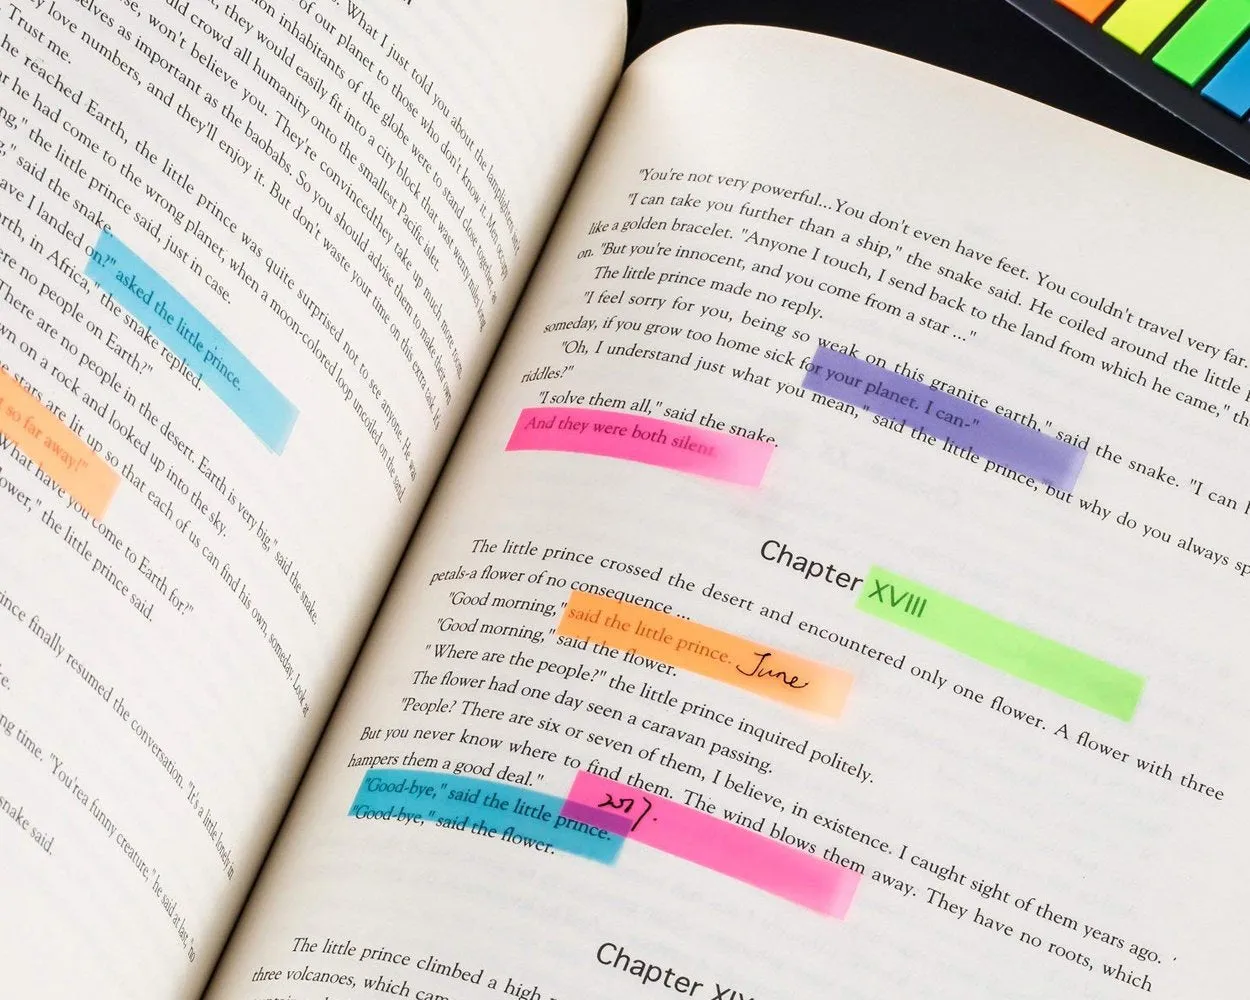 of our planet to those who don't know it. Men occupy
ion inhabitants of the globe were to stand close together, as
ld crowd all humanity onto the smallest Pacific islet.
se, won't believe you. They're convincedthey take up much more room.
selves as important as the baobabs. So you should advise them to make their own
y love numbers, and they'll enjoy it. But don't waste your time on this extra task. It's
Trust me.
he reached Earth, the little prince was quite surprised not to see anyone. He was
ar he had come to the wrong planet, when a moon-colored loop uncoiled on the sand.
ng," the little prince said, just in case.
g," said the snake.
ave I landed on?" asked the little prince.
arth, in Africa," the snake replied.
ere no people on Earth?"
There are no people in the desert. Earth is very big," said the snake.
wn on a rock and looked up into the sky.
e stars are lit up so that each of us can find his own, someday. Look at
t so far away!"
What have you come to Earth for?"
ower," the little prince said.
rince finally resumed the conversation. "It's a little lonely in
ng time. "You'rea funny creature," he said at last, "no
snake said.
"You're not very powerful...You don't even have feet. You couldn't travel very far.
"I can take you further than a ship," the snake said. He coiled around the little p
like a golden bracelet. "Anyone I touch, I send back to the land from which he came," th
on. "But you're innocent, and you come from a star ..."
The little prince made no reply.
"I feel sorry for you, being so weak on this granite earth," said the snake. "I can h
someday, if you grow too home sick for your planet. I can-"
"Oh, I understand just what you mean," said the little prince, "but why do you always sp
riddles?"
"I solve them all," said the snake.
And they were both silent.
Chapter XVIII
The little prince crossed the desert and encountered only one flower. A flower with three
petals-a flower of no consequence ...
"Good morning," said the little prince. June
"Good morning," said the flower.
"Where are the people?" the little prince inquired politely.
The flower had one day seen a caravan passing.
"People? There are six or seven of them, I believe, in existence. I caught sight of them years ago.
But you never know where to find them. The wind blows them away. They have no roots, which
hampers them a good deal."
2017.
"Good-bye," said the little prince.
"Good-bye," said the flower.
Chapter XIX
The little prince climbed a high
three volcanoes, which cam